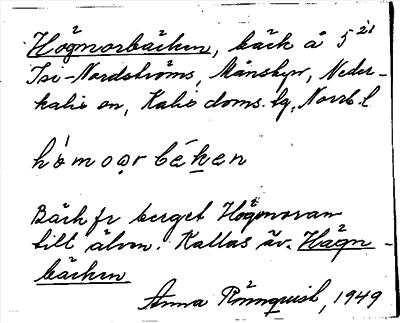 Högmorbäcken, bäck å 5 21
Isi-Nordströms, Månsbyn, Neder-
kalix sn, Kalix doms. lg, Norrb. l
hömoorbäken
Bäck fr berget Högmoran
till älven. Kallas äv. Hägn-
bäcken
Anna Rönnquist, 1949